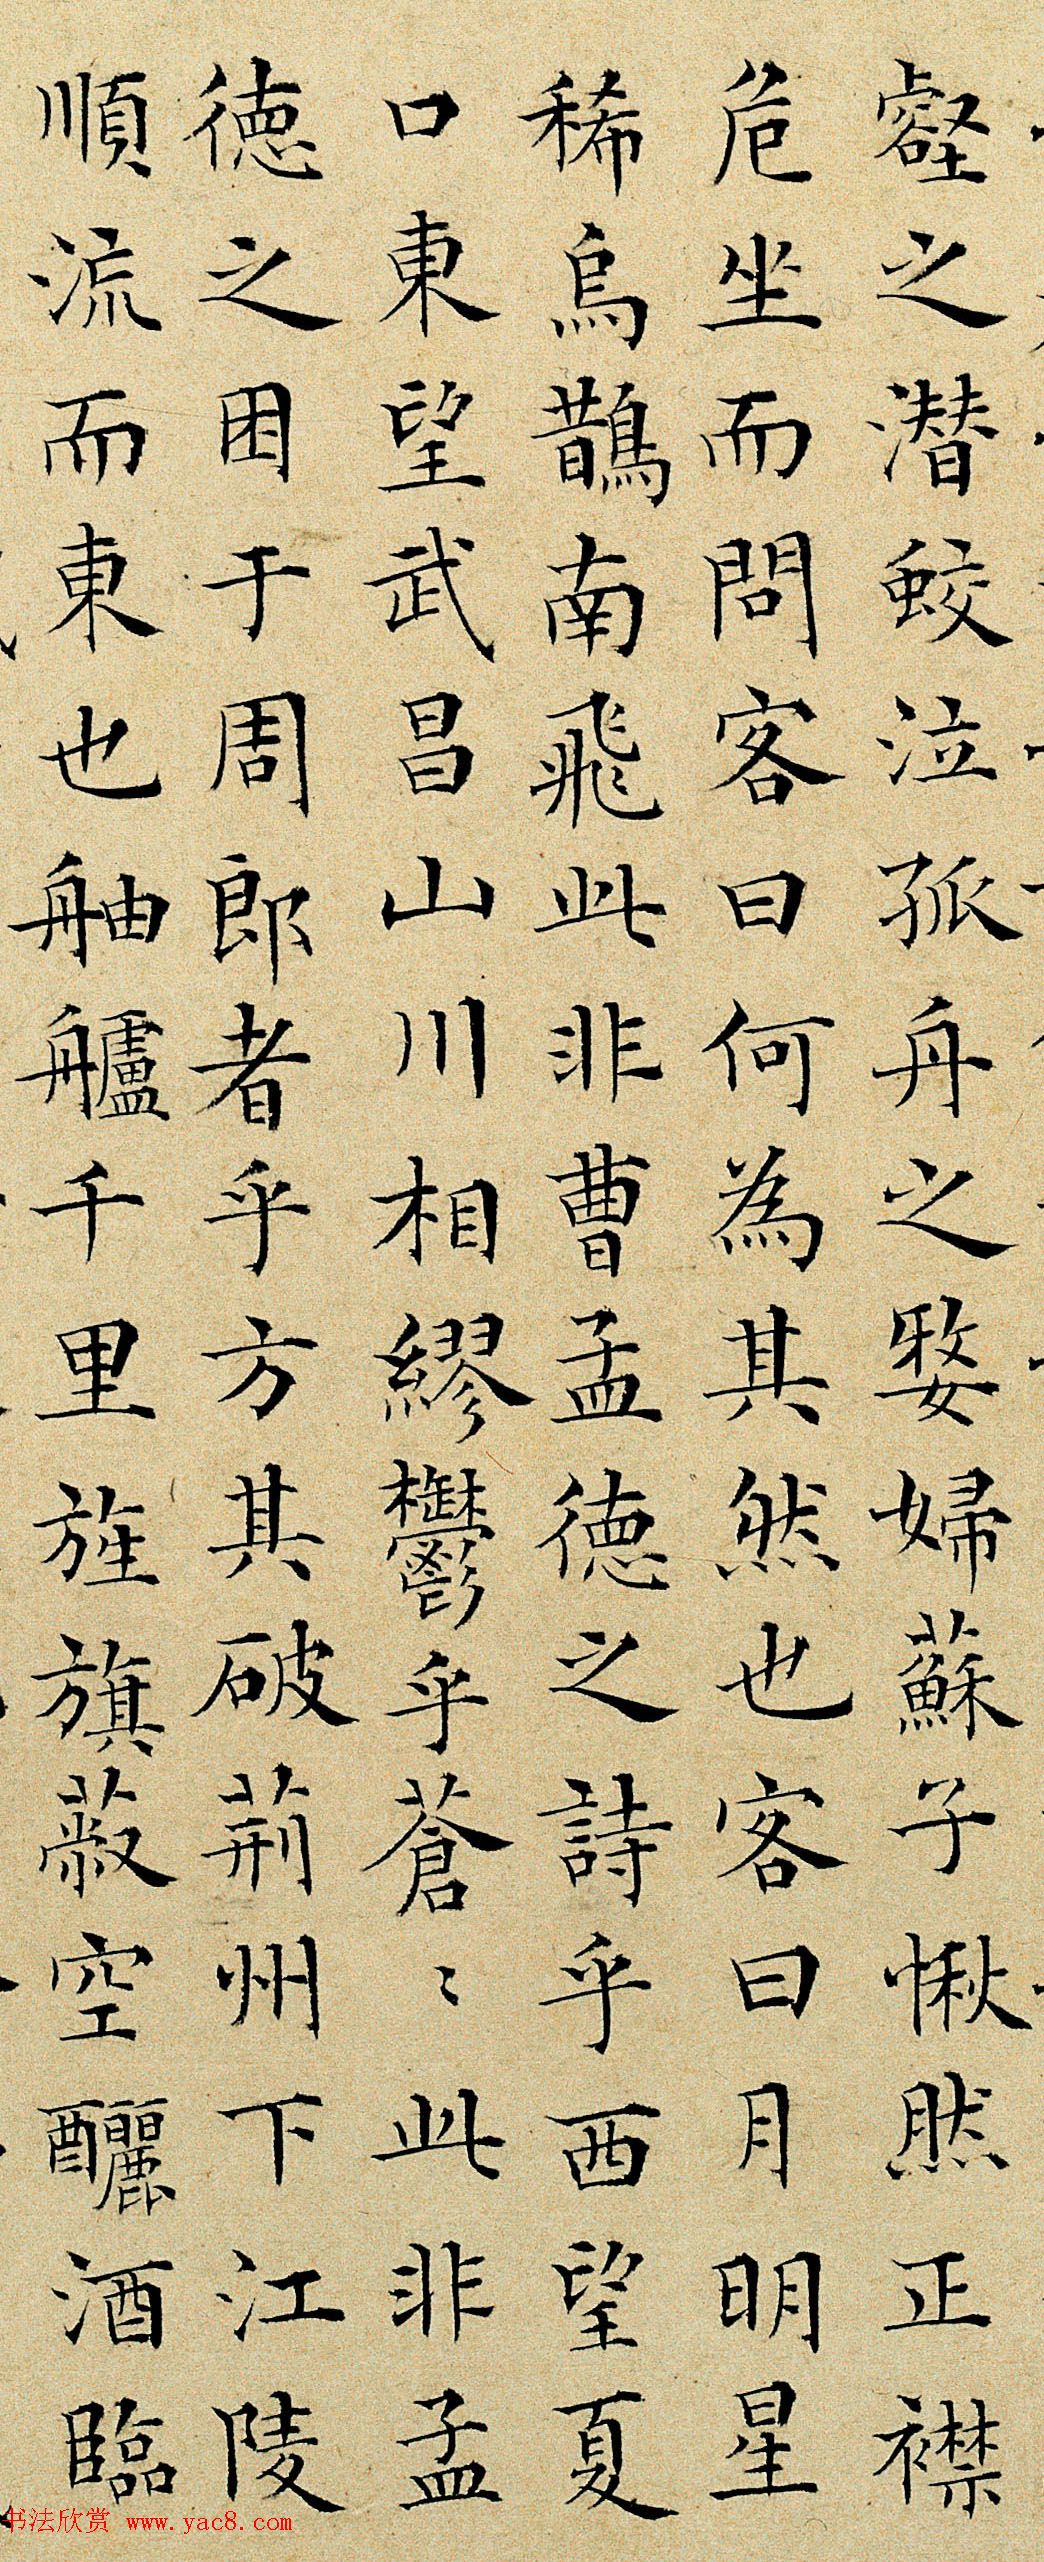 壑之潜蛟泣孤舟之嫠婦蘇子愀然正襟
危坐而問客曰何為其然也客曰月明星
稀烏鵲南飛此非曹孟德之詩乎西望夏
口東望武昌山川相繆鬱乎蒼〻此非孟
德之困于周郎者乎方其破荊州下江陵
順流而東也舳艫千里旌旗蔽空釃酒臨
书法欣赏 www.yac8.com